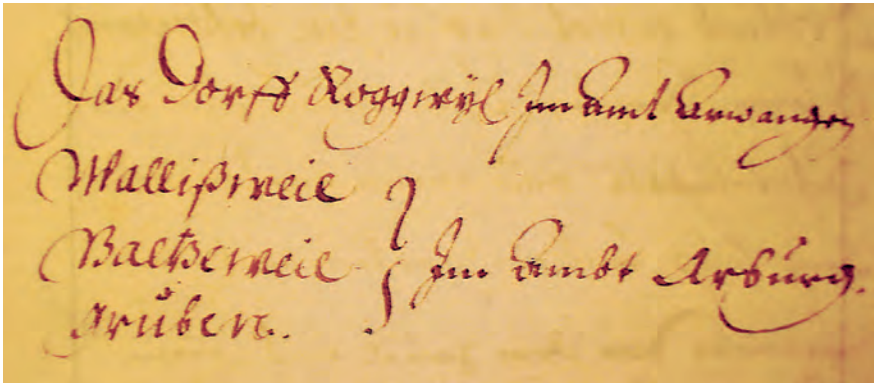 Das Dorff Roggwÿl Im Amt Arwangen
Wallißweil
Baltzweil
Gruben.
Im Ambt Arburg.